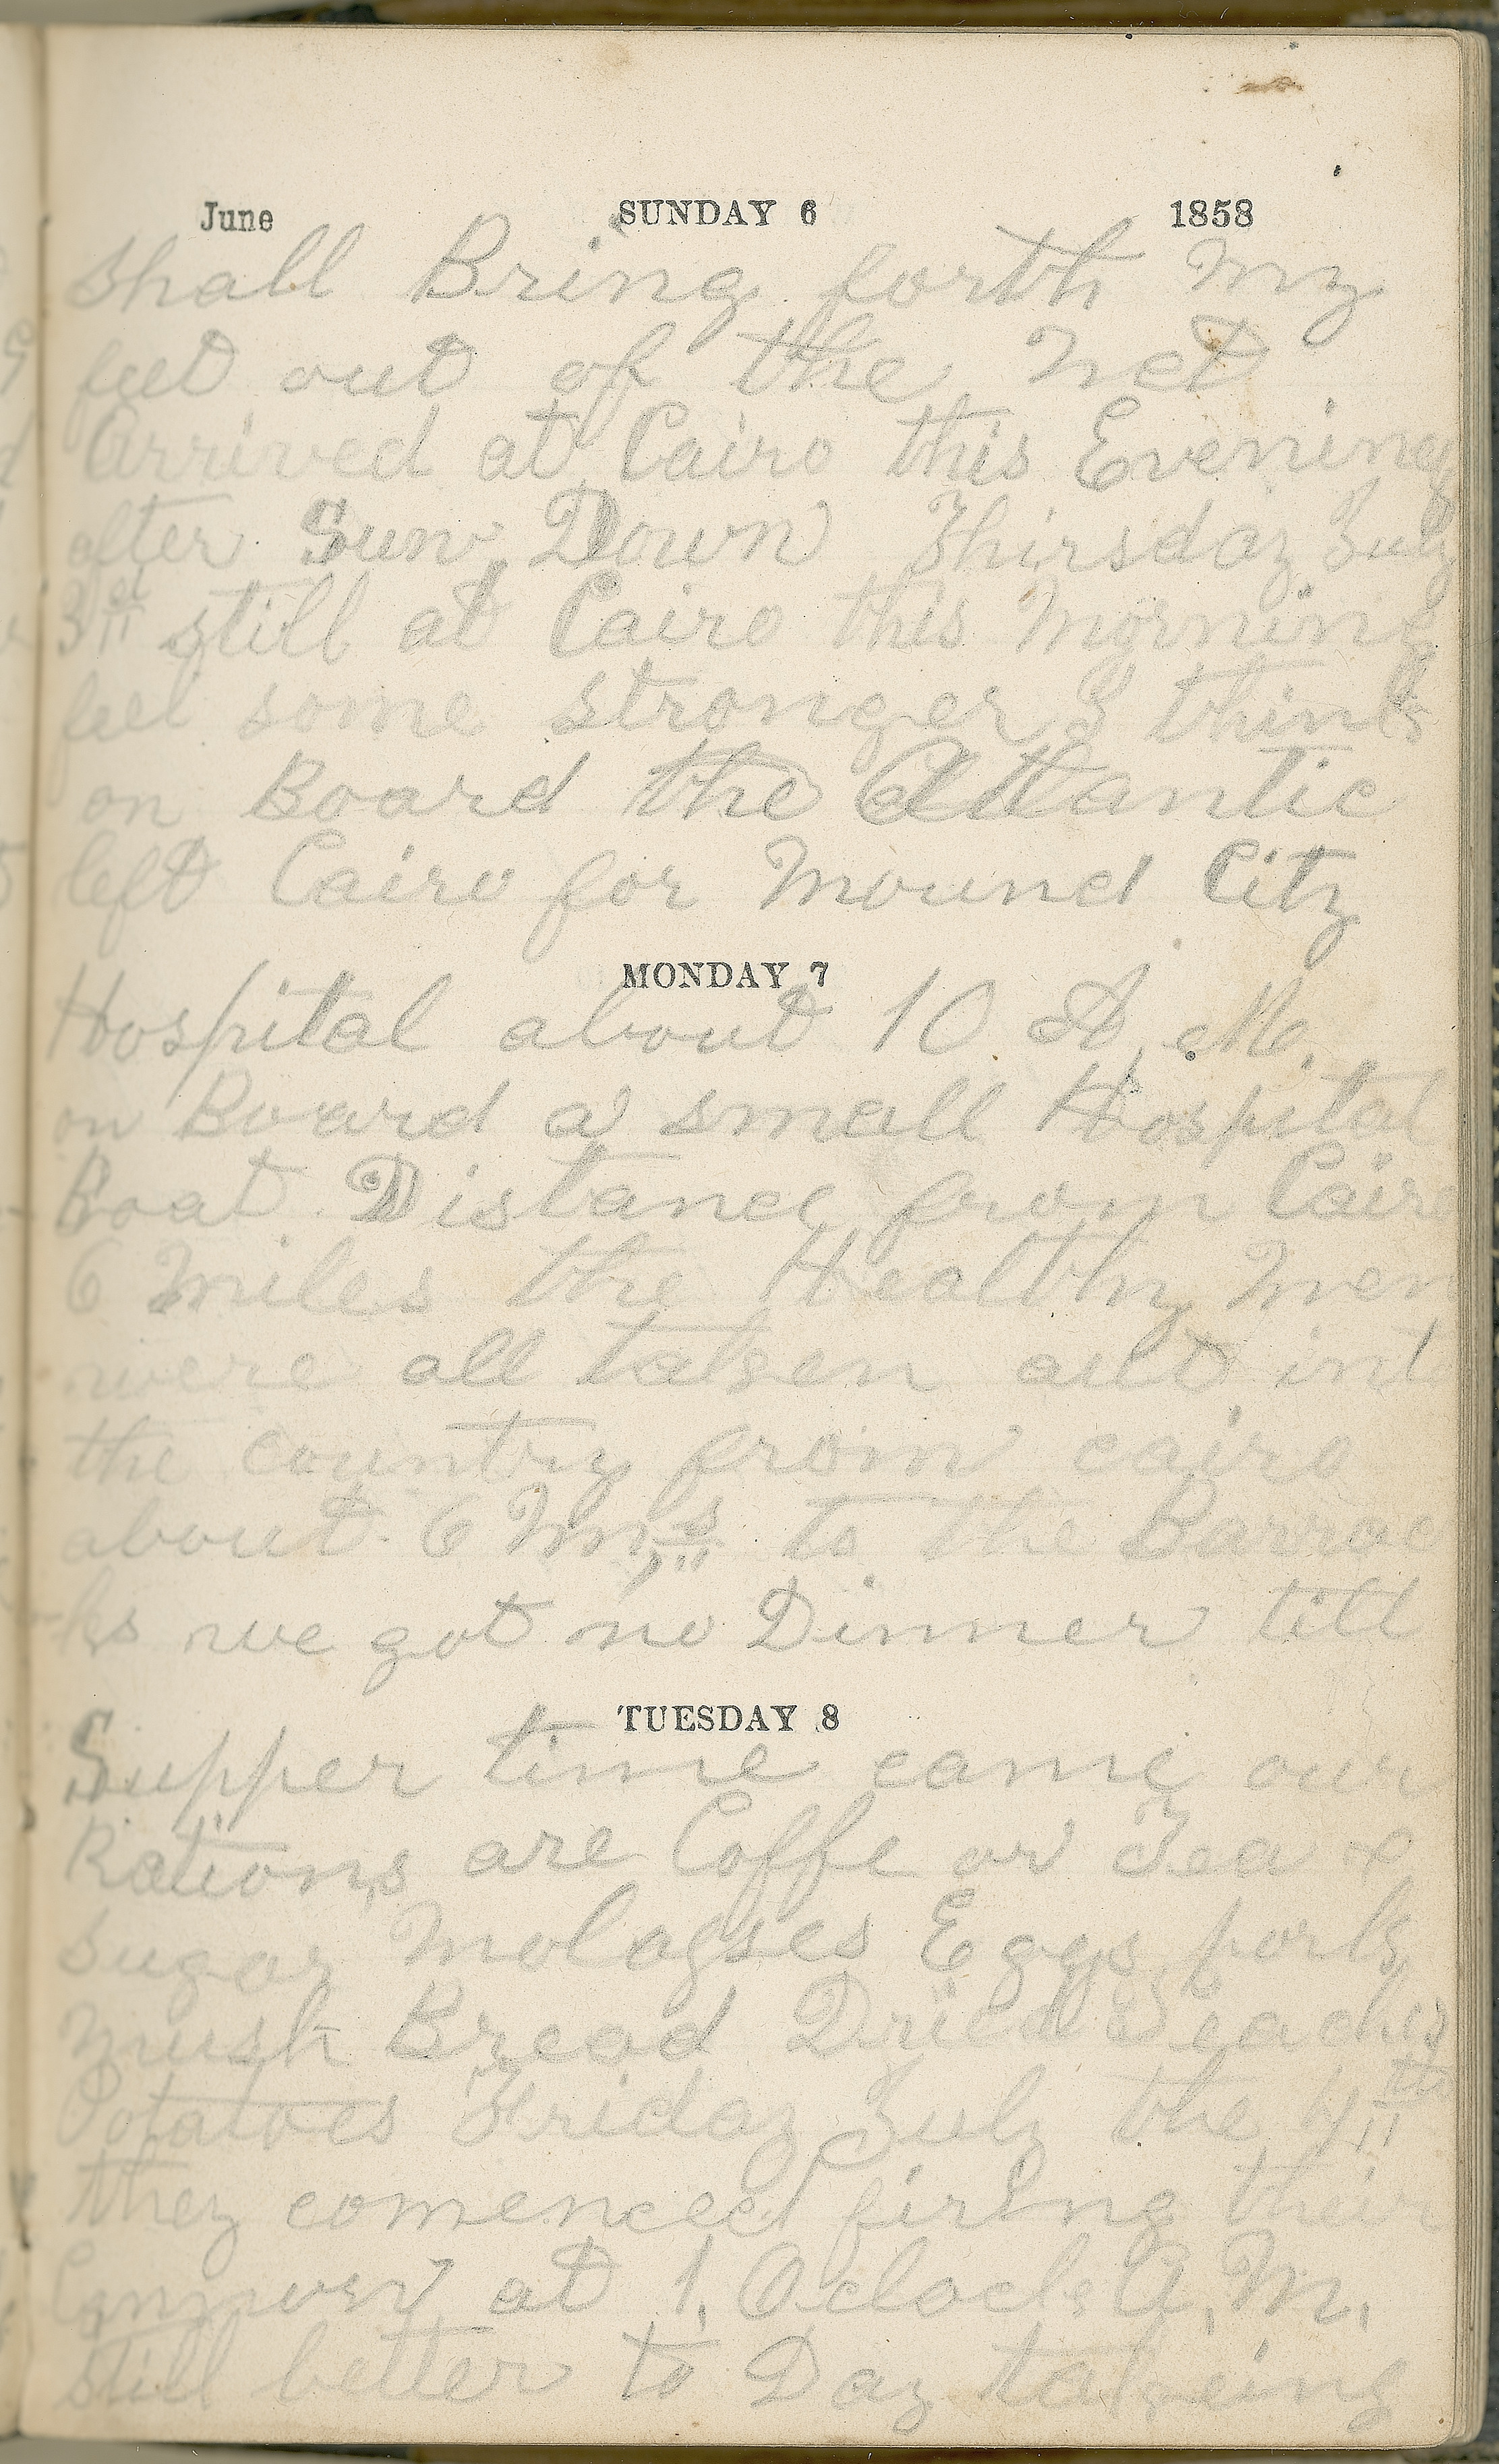 June SUNDAY 6 1858
shall Bring forth my
feet out of the net
Arrived at Cairo this Evening
after Sun Down Thirsday July
3rd still at Cairo this Morning
feel some stronger I think
on Board the Atlantic
left Cairo for Mound City
MONDAY 7
Hospital about 10 A. M.
on Board a small Hospital
Boat Distance from Cairo
6 miles the Healthy men
were all taken out into
the country from cairo
about 6 Mms to the Barrac
ks we got no Dinner till
TUESDAY 8
Supper time came our
Rations are Coffe or Tea &
sugar Molasses Eggs pork
mush Bread Dried Peaches
Potatoes Friday July the 4th
they comenced firing their
at 1, Oclock A, M,
still better to Day taking